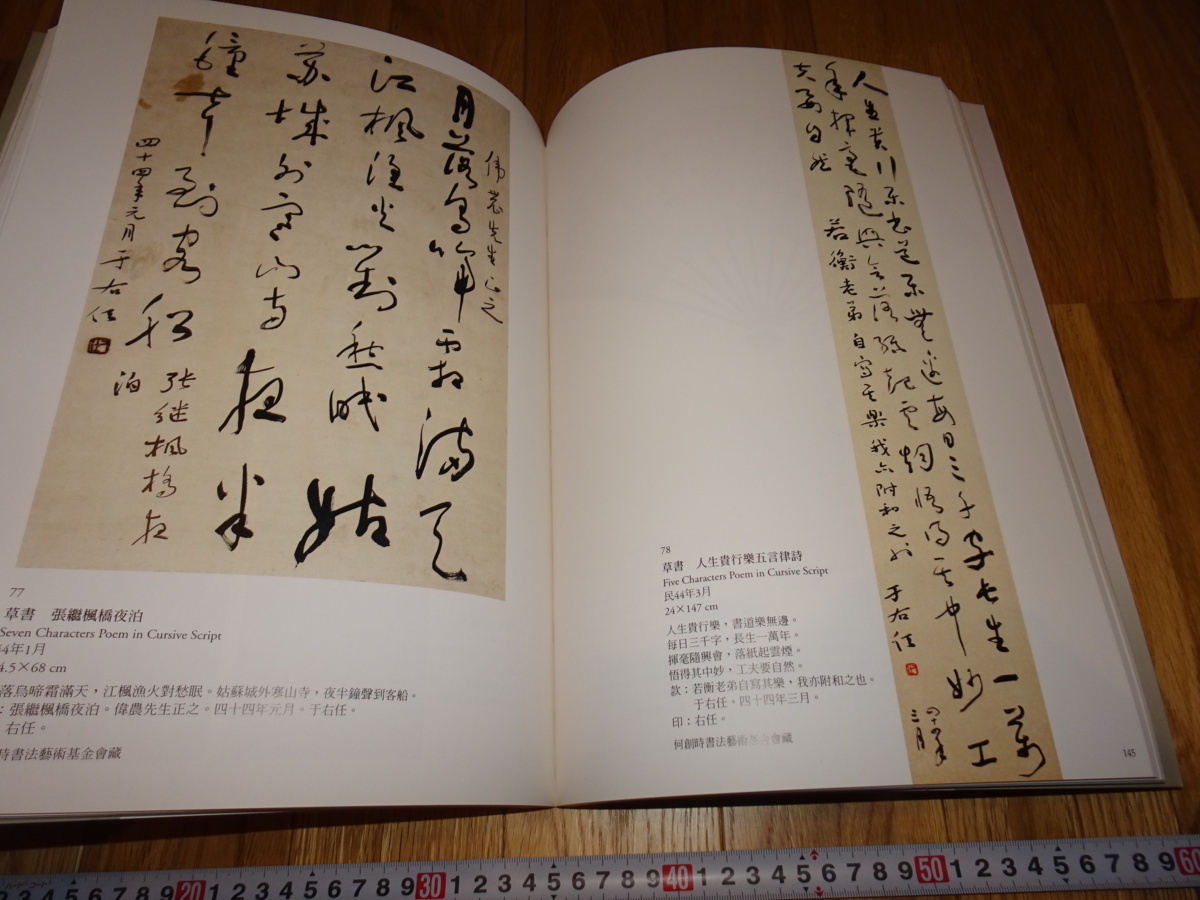 偉農先生正之
月落烏啼霜滿天
江楓漁火對愁眠
姑
蘇城外寒山寺夜半
鐘聲
到客船
張繼楓橋夜
泊
四十四年元月于右任
77
草書　張繼楓橋夜泊
Seven Characters Poem in Cursive Script
44年1月
4.5×68 cm
落烏啼霜滿天，江楓漁火對愁眠。姑蘇城外寒山寺，夜半鐘聲到客船。
：張繼楓橋夜泊。偉農先生正之。四十四年元月。于右任。
右任。
時書法藝術基金會藏
人生貴行樂書道樂無邊每日三千字長生一萬
年揮毫隨興會落紙起雲煙悟得其中妙工
夫要自然
若衡老弟自寫其樂我亦附和之也
于右任
四十四年
三月
78
草書　人生貴行樂五言律詩
Five Characters Poem in Cursive Script
民44年3月
24×147 cm
人生貴行樂，書道樂無邊。
每日三千字，長生一萬年。
揮毫隨興會，落紙起雲煙。
悟得其中妙，工夫要自然。
款：若衡老弟自寫其樂，我亦附和之也。
于右任。四十四年三月。
印：右任。
何創時書法藝術基金會藏
145
20 1 2 3 4 5 6 7 8 9 30 1 2 3 4 5 6 7 8 9 40 1 2 3 4 5 6 7 8 9 50 1 2 3 4 5 6 7 8 9 60